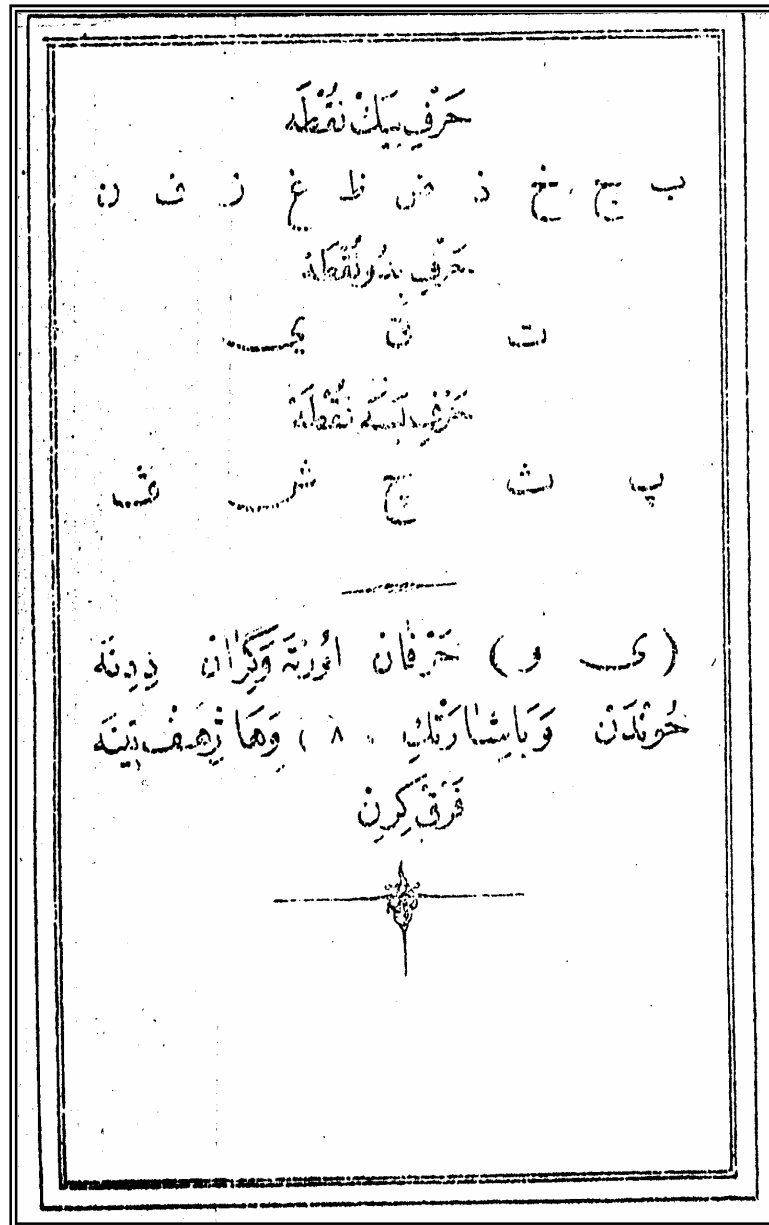 حَرْفِ بِيَكْ نُقْطَه
ب ج خ ذ ض ظ غ ز ف ن
حَرْفِ بِدُو نُقْطَه
ت ق ی
حَرْفِ بِسَه نُقْطَه
پ ث چ ش ڤ
(ی و) حَرْفَان اُورْتَه وَگِرَانْ دِدِنَه
خُونْدَنْ وَبَاشَارَتْكِ ( ٨ ) وَهَا ژِهَفْ تِینَه
فَرْقْ كِرِنْ